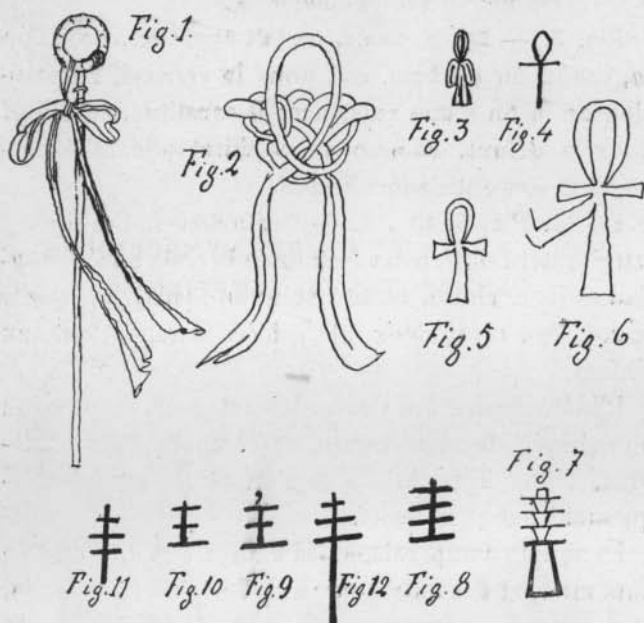 Fig. 1.
Fig. 2
Fig. 3
Fig. 4
Fig. 5
Fig. 6
Fig. 7
Fig. 11
Fig. 10
Fig. 9
Fig 12
Fig. 8